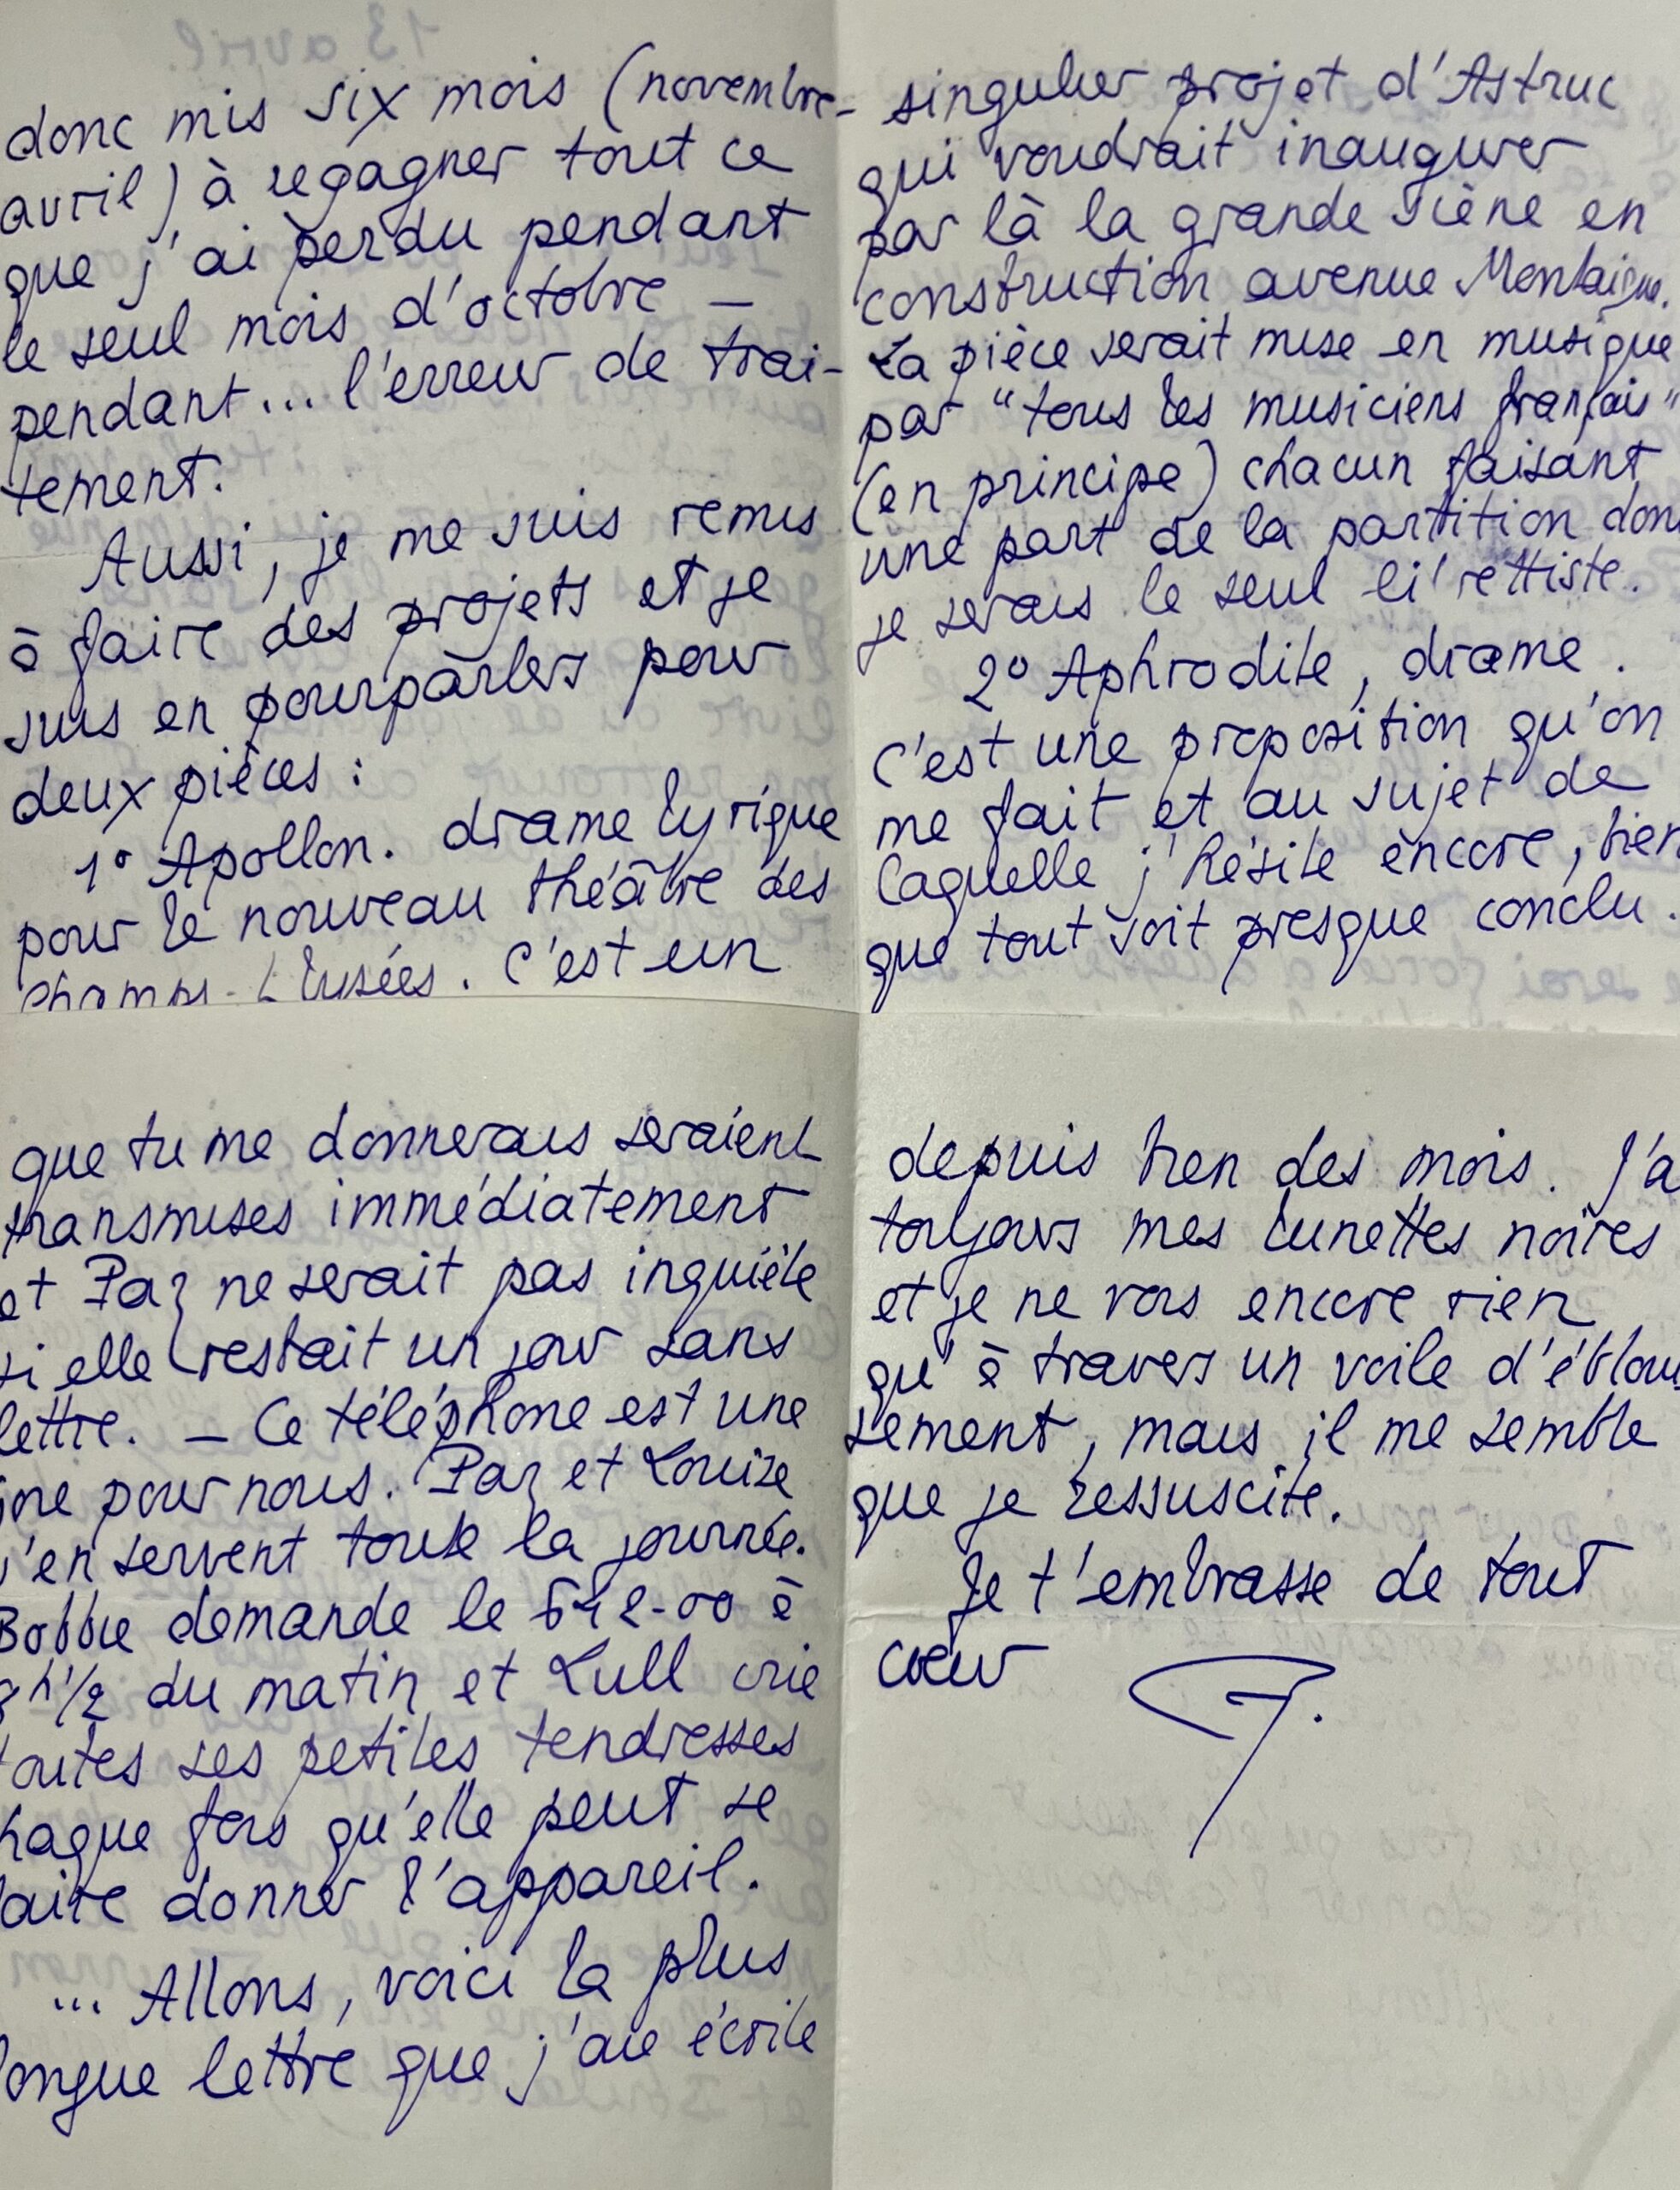 donc mis six mois (novembre-
avril) à regagner tout ce
que j'ai perdu pendant
le seul mois d'octobre —
pendant... l'erreur de trai-
tement.
Aussi, je me suis remis
à faire des projets et je
suis en pourparlers pour
deux pièces :
1° Apollon. drame lyrique
pour le nouveau théâtre des
Champs-Elysées. C'est un
singulier projet d'Astruc
qui voudrait inaugurer
par là la grande scène en
construction avenue Montaigne.
La pièce serait mise en musique
par "tous les musiciens français"
(en principe) chacun faisant
une part de la partition don
je serais le seul li'rettiste.
2° Aphrodite, drame.
C'est une proposition qu'on
me fait et au sujet de
laquelle j'hésite encore, bien
que tout soit presque conclu.
que tu me donnerais seraient
transmises immédiatement
et Paz ne serait pas inquiète
si elle restait un jour sans
lettre. — Ce téléphone est une
joie pour nous. Paz et Louise
s'en servent toute la journée.
Bobbie demande le 642-00 à
8h 1/2 du matin et Lull crie
toutes ses petites tendresses
haque fois qu'elle peut se
faire donner l'appareil.
... Allons, voici la plus
longue lettre que j'aie écrite
depuis bien des mois. J'a
toujours mes lunettes noires
et je ne vois encore rien
qu'à travers un voile d'éblou
sement, mais il me semble
que je ressuscite.
Je t'embrasse de tout
cœur
P.
13 avril.